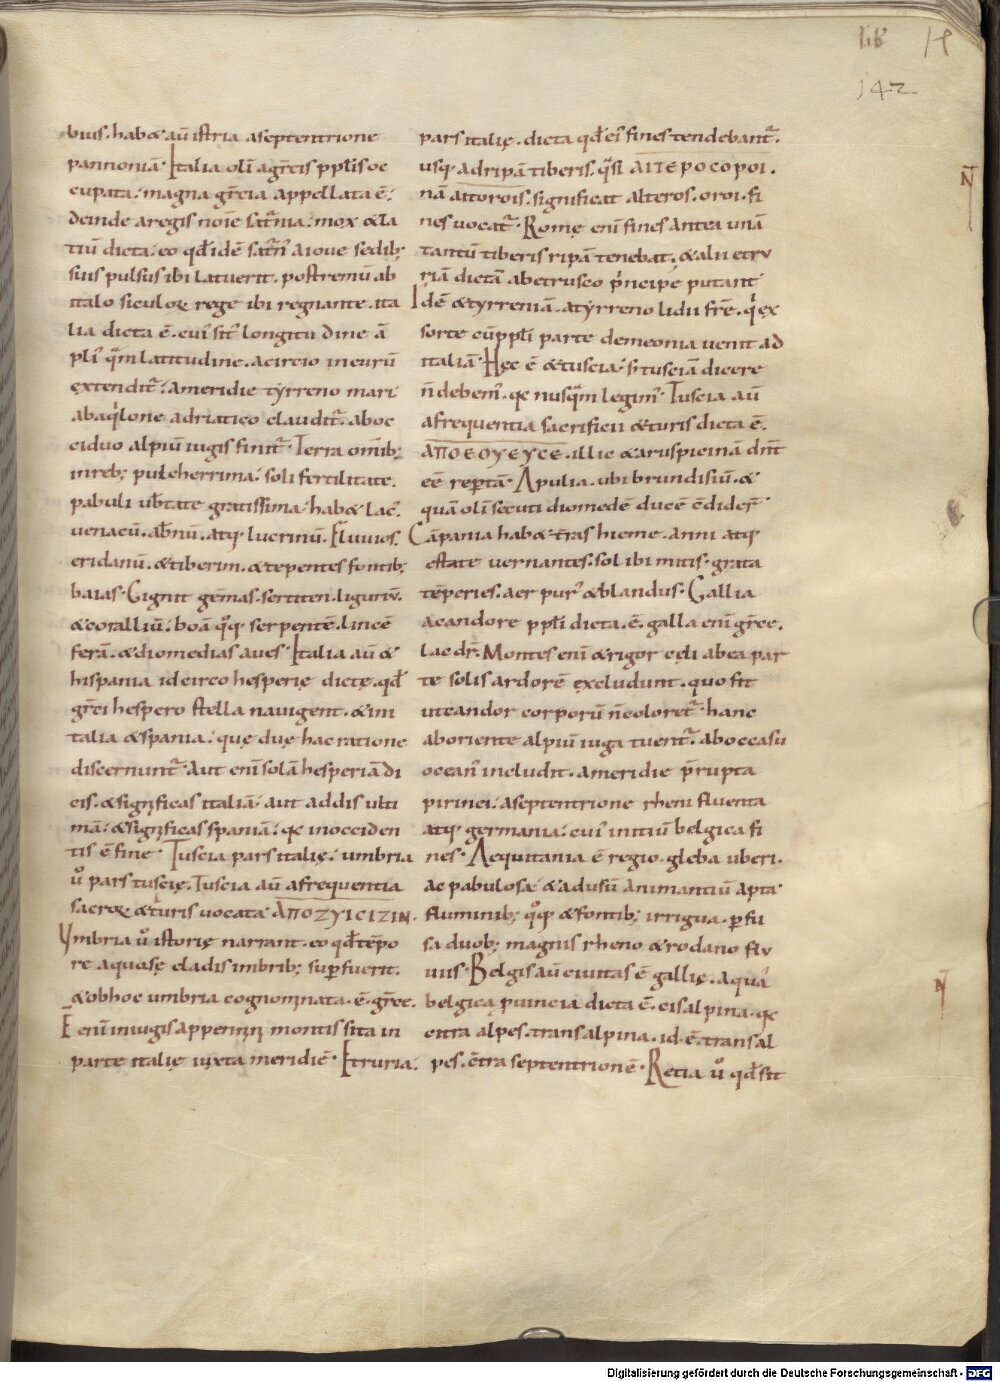 lib' 14
142
bius. hab& aū istria aseptentrione
pannoniā. Italia olī agrecis pplis oc
cupata. magna grecia appellata ē.
deinde aregis noīe saturnia. mox & la
tiū dicta. eo qđ idē saturn' aioue sedib;
suis pulsus ibi latuerit. postremū ab
italo siculoꝝ rege ibi regnante. ita
lia dicta ē. cui' sit' longitudine ā
pli' quā latitudine. acircio in eurū
extendit. ameridie tyrreno mari
abaqilone adriatico claudit. aboc
ciduo alpiū iugis finit. Terra omīb;
inreb; pulcherrima. soli fertilitate.
pabuli ubtate gratissima. hab& lac'.
venacū. abnū. atq; lucrinū. Fluvios.
eridanū. & tiberim. & tepentes fontib;
baias. Gignit gemas. sertiten. liguriū.
& coralliū. boā qoq; serpentē. lincē
ferā. & diomedias aues. Italia aū &
hispania idcirco hesperię dictę. qđ
greci hespero stella navigent. & in i
talia & spania. que duę hac ratione
discernunt. Aut enī solā hesperiā di
cis. & significas italiā. aut addis ulti
mā. & significas spaniā. qc inocciden
tis ē fine. Tuscia pars italię. umbria
ů pars tuscię. Tuscia aū afrequentia
sacroꝝ & turis uocata. ΑΠΟΖΥΙCΙΖΙΝ.
Ymbria ů istorię narrant. eo qđ tēpo
re aquosę cladis imbrib; supfuerit.
& obhoc umbria cognominata. ē. grēc.
E enī iniugis appennini montis sita in
parte italię iuxta meridiē. Etruria.
pars italię. dicta qđ ei' fines tendebant
usq; adripā tiberis. qsi ΑΙΤΕΡΟCΟΡΟΙ.
nā aitorois. significat alteros. oroi. fi
nes uocat. Romę enī fines antea unā
tantū tiberis ripā tenebat. & alii etru
riā dictā abetrusco principe putant
Idē & tyrreniā. atyrreno lidii frē. qi ex
sorte cū ppli parte demeonia uenit ad
italiā. Hęc ē & tuscia. s; tusciā dicere
ñ debem'. qc nusqā legim'. Tuscia aū
afrequentia sacrificii & turis dicta ē.
ΑΠΟΕΟΥΕΥCΕ. illic & aruspicinā dnt
eē reptā. Apulia. ubi brundisiū. &
quā olī secuti diomedē ducē ēdider̄
Cāpania hab& tras hieme. anni atq;
estate uernantes. sol ibi mitis. grata
tēperies. aer pur' & blandus. Gallia
acandore ppli dicta. ē. galla enī grēc.
lac dr. Montes enī & rigor cęli abea par
te solis ardorē excludunt. quo fit
ut candor corporū ñ coloret. hanc
aboriente alpiū iuga tuent. aboccasu
oceani includit. ameridie prupta
pirinei. aseptentrione rheni fluenta
atq; germania. cui' initiū belgica fi
nes. Aequitania ē regio. gleba uberi.
ac pabulosa. & adusū animantiū apta.
fluminib; qoq; & fontib; irrigua. pfu
sa duob; magnis rheno & rodano flu
uiis. Belgis aū ciuitas ē gallię. aqua
belgica puincia dicta ē. cisalpina. qc
citra alpes. transalpina. id ē. transal
pes. ctra septentrionē. Retia ů qđ sit
N
N
Digitalisierung gefördert durch die Deutsche Forschungsgemeinschaft - DFG